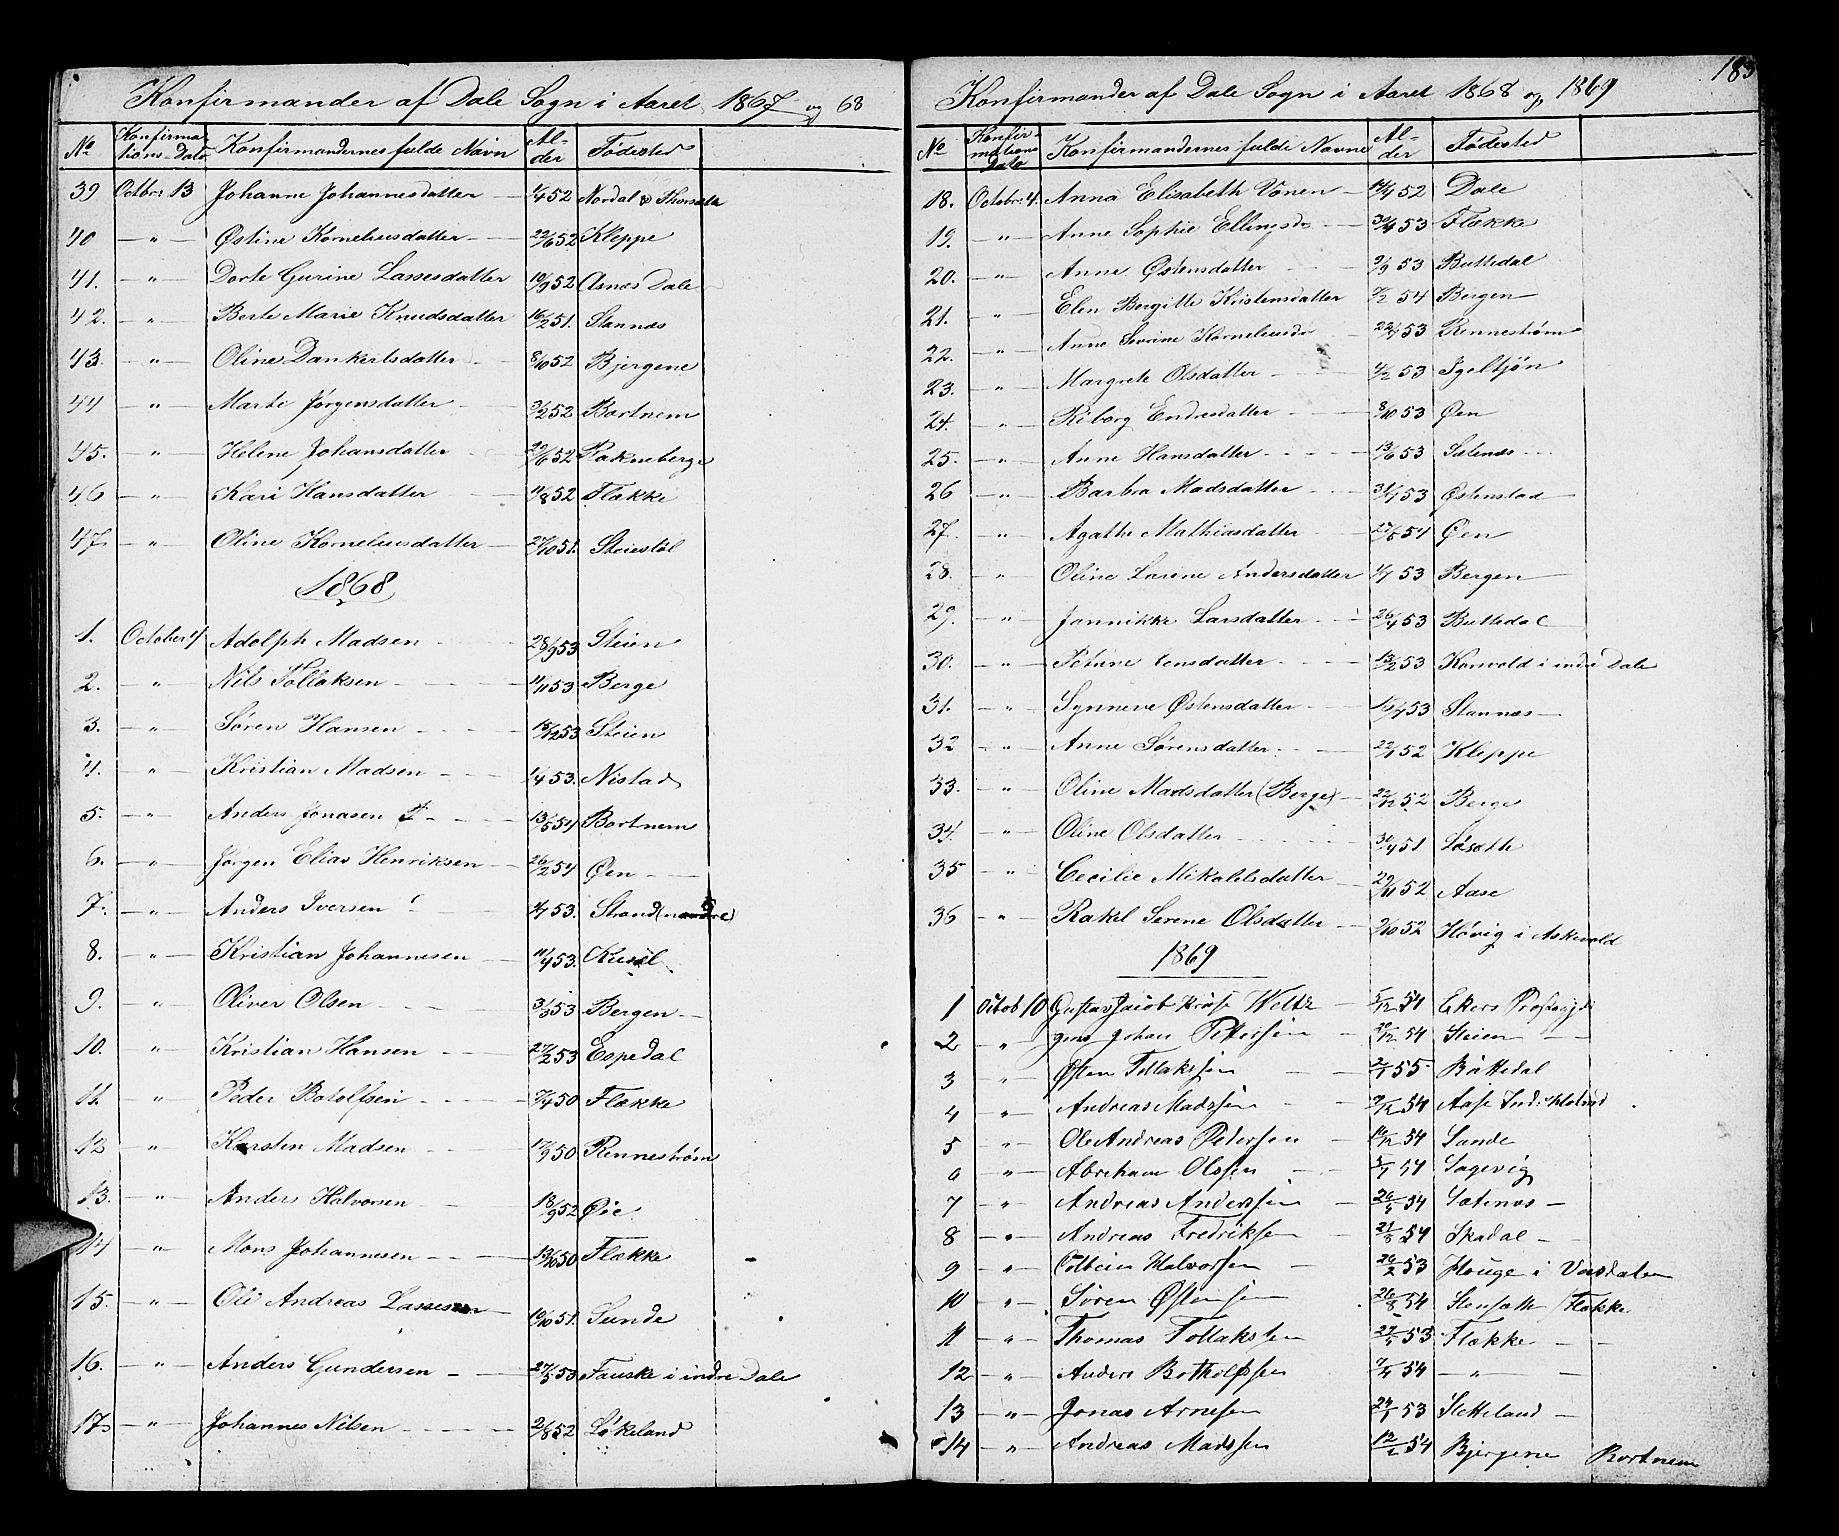 Konfirmander af Dale Sogn i Aaret 1867 og 68
No Konfirmations-Dato Konfirmandernes fulde Navn Alder Fødested
39 Octbr. 13 Johanne Johannesdatter 52 Nordal
40 — " — Østine Korneliusdatter — 22/6 52 Kleppe
41. — " — Dorte Gurine Lassesdatter 19/9 52 Asnæs Dale
42. — " — Berte Marie Knudsdatter 16/2 51. Stannæs
43. — " — Oline Dankertsdatter — 8/10 52 Bjergene
44 — " — Marte Jørgensdatter — 3/2 52 Bortnem
45. — " — Helene Johansdatter — 20/6 52 Rakneberge
46 — " — Kari Hansdatter — 11/8 52 Flekke
47. — " — Oline Korneliusdatter — 27/10 51. Steiestøl
1868
1. October 4 Adolph Madsen — 28/9 53 Steien
2. — " — Nils Tollaksen — 11/11 53 Berge
3. — " — Søren Hansen — 18/12 53 Steien
4. — " — Kristian Madsen — 1/4 53. Nistad
5. — " — Anders Jonasen — 13/5 54 Bortnem
6. — " — Jørgen Elias Henriksen — 26/2 54 Øen —
7. — " — Anders Iversen — 53. Strand
8. — " — Kristian Johannesen — 11/4 53.
9. — " — Oliver Olsen — 3/3 53 Bergen —
10. — " — Kristian Hansen — 27/2 53 Espedal
11. — " — Peder Botolfsen — 7/4 50 Flekke
12 — " — Karsten Madsen — 17/9 50 Rennestrøm
13. — " — Anders Halvorsen — 18/9 52 Øie
14 — " — Mons Johannesen — 13/10 50 Flekke
15. — " — Ole Andreas Lassesen 19/10 51. Sunde
16. — " — Anders Gundersen — 27/5 53 Fauske i indre Dale
17. — " — Johannes Nilsen — 2/8 52 Løkeland
183
Konfirmander af Dale Sogn i Aaret 1868 og 1869
No Konfirmations Dato Konfirmandernes fulde Navne Alder Fødested
18. Octobr. 4. Anna Elisabeth Vonen — 52 Dale
19. — " — Anne Sophie Ellingsdr — 53 Flekke
20. — " — Anne Østensdatter — 9/9 53 Buttedal
21. — " — Elen Bergitte Kristensdatter 7/2 54 Bergen
22. — " — Anne Severine Korneliusdr — 53 Rennestrøm
23. — " — Margrete Olsdatter — 4/2 53 Igeltjøn
24. — " — Endresdatter — 8/10 53 Øen
25. — " — Anne Hansdatter — 13/6 53 Sætenæs
26 — " — Barbra Madsdatter — 53 Østenstad
27. — " — Agathe Mathiasdatter — 54 Øen
28. — " — Oline Lovine Andersdatter 53 Bergen
29. — " — Jannikke Larsdatter — 53 Buttedal
30. — " — Jensdatter — 13/2 53 Korsvold i indre Dale
31. — " — Synneve Østensdatter — 53 Stannæs —
32 — " — Anne Sørensdatter — 52 Kleppe
33. — " — Oline Madsdatter (Berge) — 22/12 52 Berge
34. — " — Oline Olsdatter — 51
35 — " — Cecilie Mikaelsdatter — 29/11 52 Aase
36 — " — Rakel Serene Olsdatter — 2/10 52 Høvig i Askevold
1869
1 Octob 10 Gustav Jacob — 5/12 54 Ekers
2 — " — Jens Johan Pettersen — 54 Steien —
3 — " — Østen Tollakssen — 55 Buttedal
4 — " — Andreas Madssen — 54 Aase
5 — " — Ole Andreas Pedersen — 54 Sande
6 — " — Abraham Olssen — 54 Sagevig
7 — " — Andreas Anderssen — 54 Sætenæs —
8 — " — Andreas Fredriksen — 21/8 54 Skadal —
9 — " — Halvorssen — 26/2 53 Houge i
10 — " — Søren Østensen — 26/8 54 Flekke
11 — " — Thomas Tollakssen 53 Flekke —
12 — " — Anders Botholfssen 54 — " —
13 — " — Jonas Arnesen 53 Sletteland —
14 — " — Andreas Madssen 54 Bjergene Bortnem